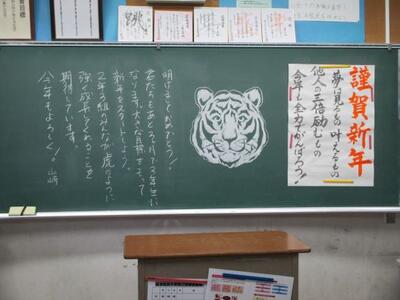 謹賀新年
夢は見るもの叶えるもの
他人の三倍励むもの
今年も全力でがんばろう!
明けましておめでとう!
君たちもあと3ヶ月で3年生に
なります。大きな目標をもって
新年をスタートしよう!
2年3組のみんなが虎のように
強く成長してくれることを
期待しています。
今年もよろしく! 山崎